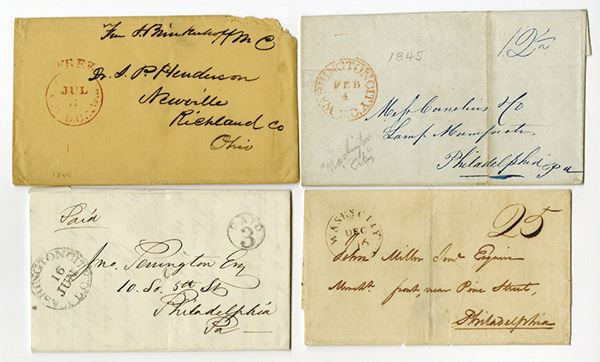 Free J. Brinkerhoff M C
FREE
JUL
Dr. J. P. Henderson
Newville
Richland Co
Ohio
1845
12½
WASHINGTON CITY
FEB
4
D.C.
Messrs Cornelius & Co
Lamp Manufacts
Philadelphia Pa
Washington
City
Paid
PAID
3
WASHINGTON CITY
16
JUN
D.C.
Jno. Penington Esq
10. So. 5th St
Philadelphia
Pa
25
WASHN CITY
DEC
16
John Miller Junr Esquire
front, near Pine Street,
Philadelphia